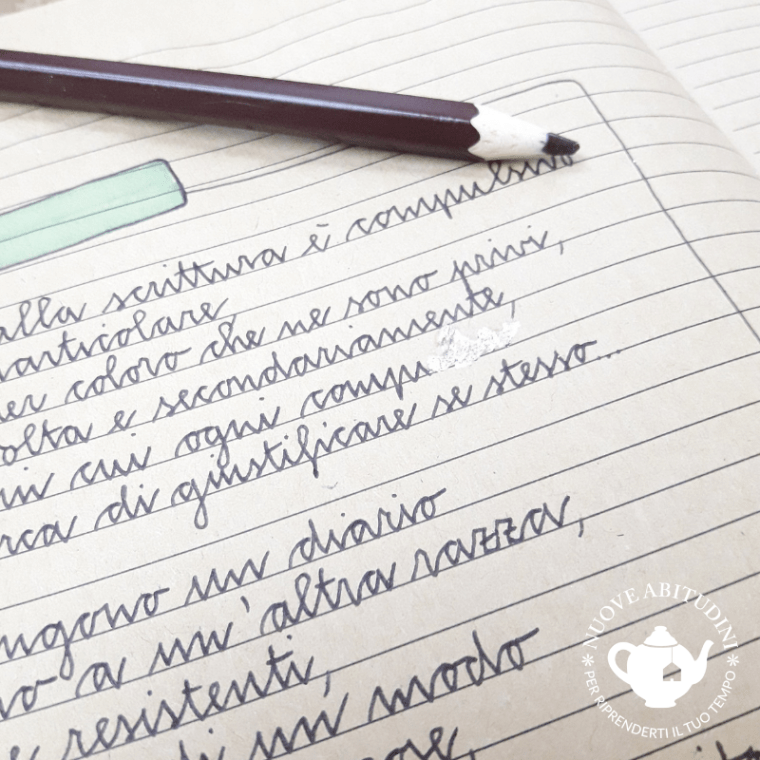 alla scrittura è compulsivo
articolare,
er coloro che ne sono privi,
olta e secondariamente,
in cui ogni compu
rca di giustificare se stesso...
ngono un diario
o a un'altra razza,
e resistenti,
di un modo
NUOVE ABITUDINI
PER RIPRENDERTI IL TUO TEMPO